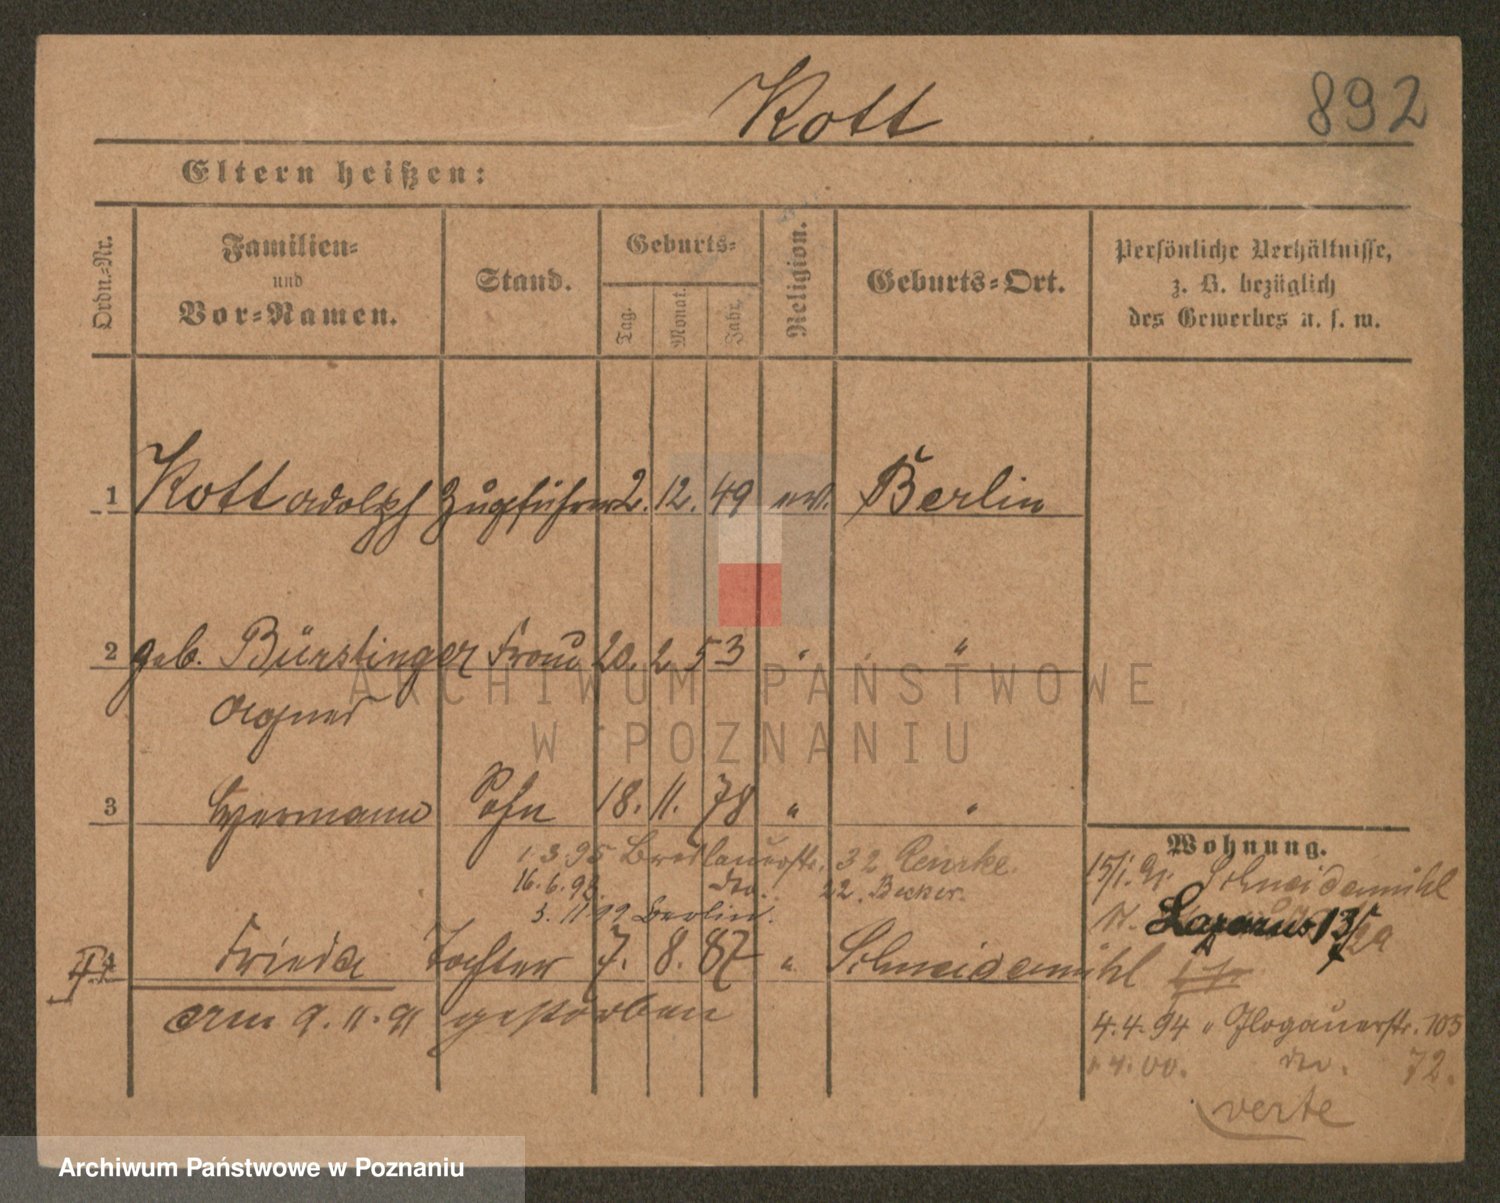 Kott
892
Eltern heißen:
Ordn.-Nr.
Familien- und Vor-Namen.
Stand.
Geburts-
Tag.
Monat.
Jahr.
Religion.
Geburts-Ort.
Persönliche Verhältnisse, z. B. bezüglich des Gewerbes u. s. w.
1 Kott Adolph Zugführer 2. 12. 49 ev. Berlin
2 geb. Bürstinger Frau 20. 2. 53 " "
Agnes
3 Hermann Sohn 18. 11. 78 " "
Wohnung.
1. 3. 95 Breslauerstr. 32
15/1. 91. Schneidemühl
16. 6. 98. do. 22. Becker.
3. 11 99 Berlin.
Lazarus 13
4 Frieda Tochter 7. 8. 87 " Schneidemühl
am 9. 11. 91 gestorben
4. 4. 94 " Glogauerstr. 105
4. 00. do. 72.
verte
ARCHIWUM PAŃSTWOWE
W POZNANIU
Archiwum Państwowe w Poznaniu